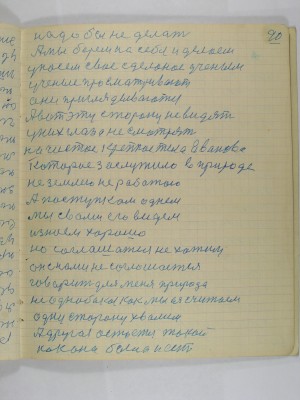 20
надо бы не делат
А мы берем на себя и делаем
учоем свое сделоное учением
учение просматривают
они приглядиваются
А вот эту сторону не видят
у них глаза не смотрят
на чистое крепкое тела Иванова
которое заслужило в природе
не землею не работою
А поступком однем
мы с вами его видем
и знаем хорошо
но соглашатся не хотим
он с нами не соглошается
говорит для меня природа
не однобокая как мы ея считаем
одну сторону хвалим
А другая остается такой
как она была и есть